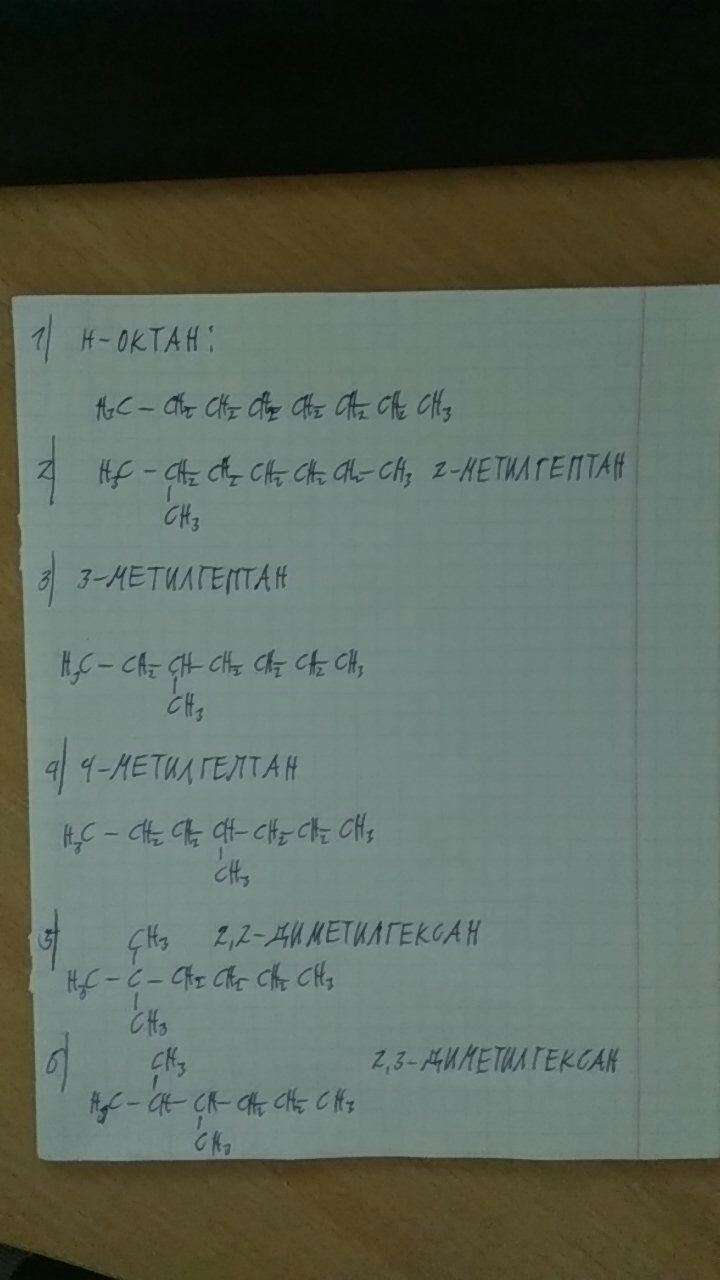 1) Н-ОКТАН:
H₃C – CH₂ CH₂ CH₂ CH₂ CH₂ CH₂ CH₃
2) H₃C – CH₂ CH₂ CH₂ CH₂ CH₂ – CH₃ 2-МЕТИЛГЕПТАН
CH₃
3) 3-МЕТИЛГЕПТАН
H₃C – CH₂ CH – CH₂ CH₂ CH₂ CH₃
CH₃
4) 4-МЕТИЛГЕПТАН
H₃C – CH₂ CH₂ CH – CH₂ – CH₂ CH₃
CH₃
5) CH₃ 2,2-ДИМЕТИЛГЕКСАН
H₃C – C – CH₂ CH₂ CH₂ CH₃
CH₃
6) CH₃ 2,3-ДИМЕТИЛГЕКСАН
H₃C – CH – CH – CH₂ CH₂ CH₃
CH₃